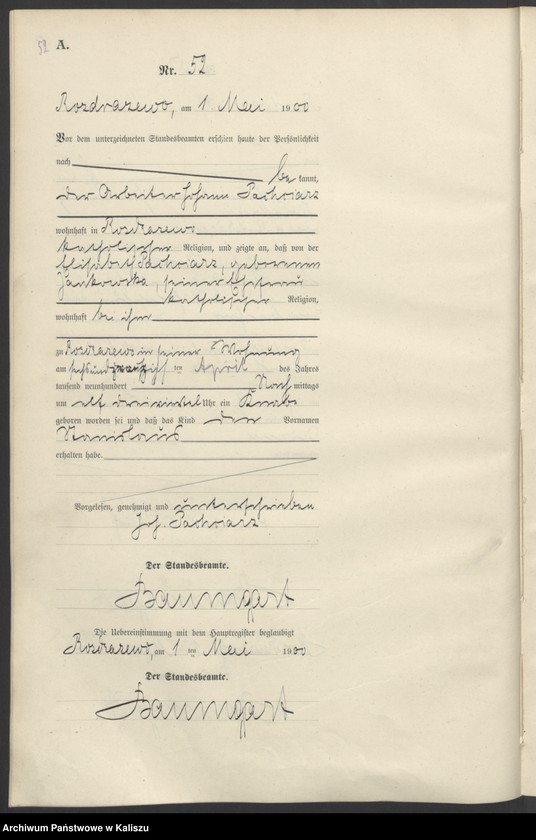 52 A.
Nr. 52
Rozdrazewo, am 1 Mai 1900
Vor dem unterzeichneten Standesbeamten erschien heute der Persönlichkeit
nach be kannt,
der Arbeiter Johann
wohnhaft in Rozdrazewo
katholischer Religion, und zeigte an, daß von der
Elisabeth geborenen
Jankowska, seiner Ehefrau
katholischer Religion,
wohnhaft bei ihm
zu Rozdrazewo in seiner Wohnung
am sechsundzwanzigsten ten April des Jahres
tausend neunhundert Nach mittags
um elf dreiviertel Uhr ein Knabe
geboren worden sei und daß das Kind den Vornamen
Stanislaus
erhalten habe.
Vorgelesen, genehmigt und unterschrieben
Joh.
Der Standesbeamte.
Baumgart
Die Uebereinstimmung mit dem Hauptregister beglaubigt
Rozdrazewo, am 1 ten Mai 1900
Der Standesbeamte.
Baumgart
Archiwum Państwowe w Kaliszu